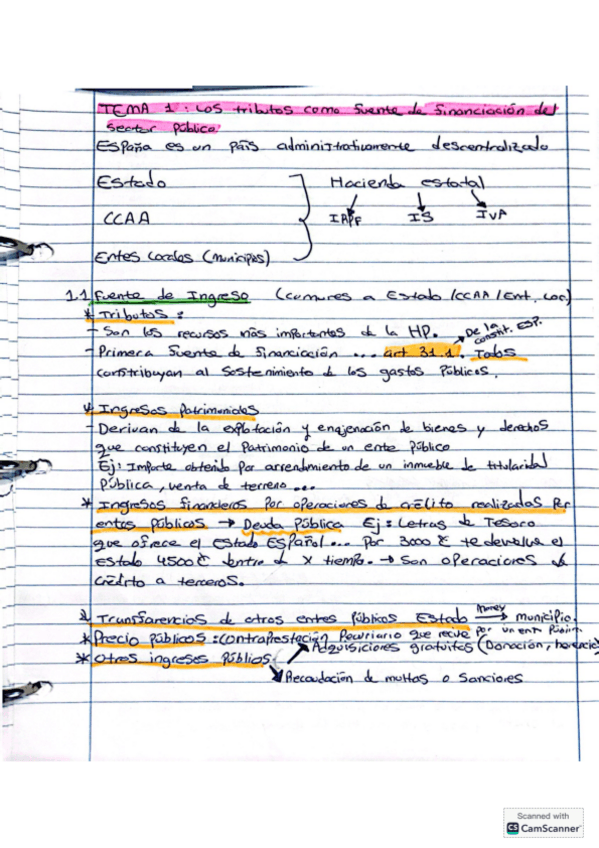 TEMA 1: Los tributos como fuente de financiación del
sector público.
España es un país administrativamente descentralizado
Estado
Hacienda estatal
CCAA
IRPF IS IVA
Entes Locales (Municipios)
1.1 Fuente de Ingreso (comunes a Estado/CCAA/Ent. Loc)
* Tributos:
- Son los recursos más importantes de la HP.
De la constit. ESP.
- Primera fuente de financiación ... art 31.1. Todos
contribuyan al sostenimiento de los gastos públicos.
* Ingresos Patrimoniales
- Derivan de la explotación y enajenación de bienes y derechos
que constituyen el Patrimonio de un ente público
Ej: Importe obtenido por arrendamiento de un inmueble de titularidad
Pública, venta de terreno...
* Ingresos financieros por operaciones de crédito realizados por
entes públicos → Deuda Pública Ej: Letras de Tesoro
que ofrece el Estado Español... Por 3000 € te devuelve el
Estado 4500 € dentro de X tiempo. → Son operaciones de
Crédito a terceros.
* Transferencias de otros entes públicos Estado money → municipio.
* Precio Públicos: contraprestación Pecuniario que recive por un ent Públic
* Otros ingresos públios
Adquisiciones gratuitas (Donación, herencia)
Recaudación de multas o Sanciones
Scanned with
CS CamScanner